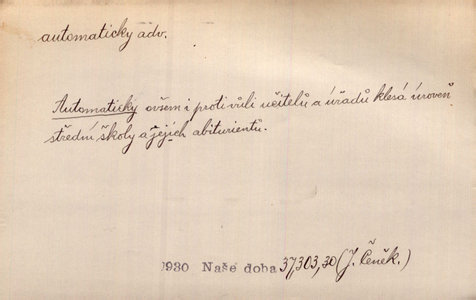 automaticky adv.
Automaticky ovšem i proti vůli učitelů a úřadů klesá úroveň
střední školy a jejich abiturientů.
1930 Naše doba 37,303,30 (J. Čeněk.)